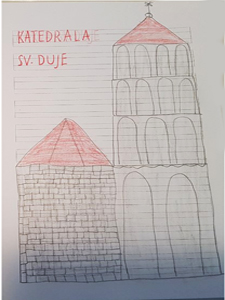 KATEDRALA
SV. DUJE